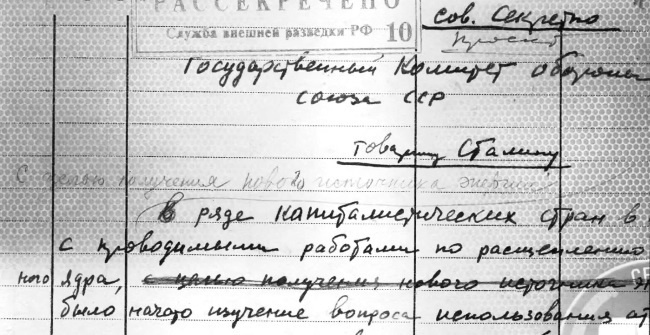 РАССЕКРЕЧЕНО
Служба внешней разведки РФ 10
Сов. Секретно
проект
Государственный Комитет обороны
Союза ССР
товарищу Сталину
с целью получения нового источника энергии
В ряде капиталистических стран в
с проводимыми работами по расщеплению
ного ядра, с целью получения нового источника эн
было начато изучение вопроса использования ат